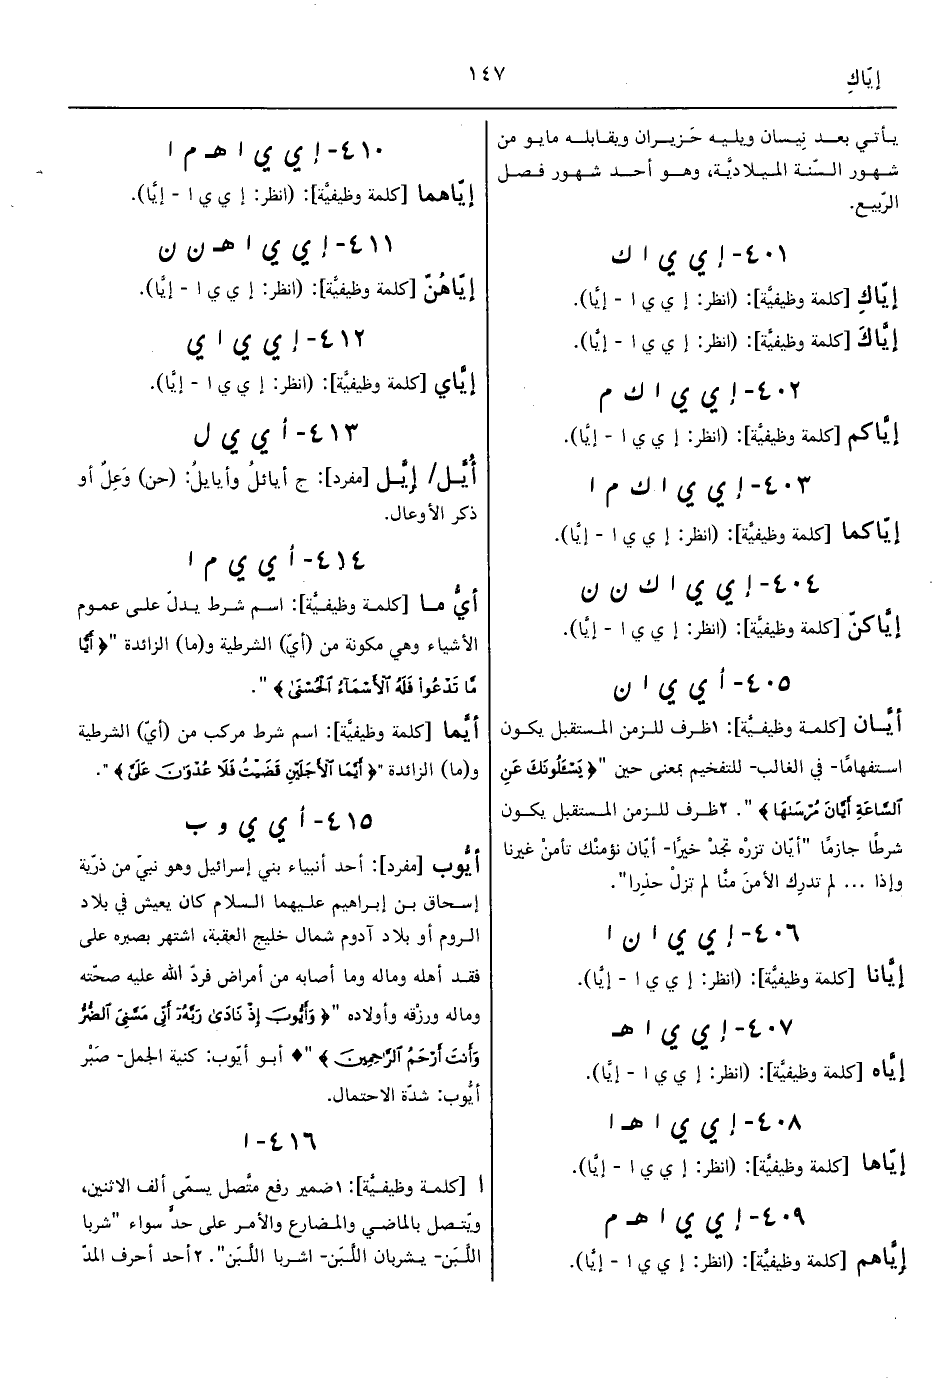 إيّاكِ
١٤٧
يأتي بعد نِيسان ويليه حَزيران ويقابله مايو من
شهور السّنة الميلاديَّة، وهو أحد شهور فصل
الرّبيع.
٤٠١- إ ي ي ا ك
إيّاكِ [كلمة وظيفيَّة]: (انظر: إ ي ي ا - إيَّا).
إيَّاكَ [كلمة وظيفيَّة]: (انظر: إ ي ي ا - إيَّا).
٤٠٢- إ ي ي ا ك م
إيَّاكم [كلمة وظيفيَّة]: (انظر: إ ي ي ا - إيَّا).
٤٠٣- إ ي ي ا ك م ا
إيّاكما [كلمة وظيفيَّة]: (انظر: إ ي ي ا - إيَّا).
٤٠٤- إ ي ي ا ك ن ن
إيَّاكنّ [كلمة وظيفيَّة]: (انظر: إ ي ي ا - إيَّا).
٤٠٥- أ ي ي ا ن
أيَّان [كلمة وظيفيَّة]: ١ظرف للزمن المستقبل يكون
استفهامًا- في الغالب- للتفخيم بمعنى حين "﴿ يَسْـَٔلُونَكَ عَنِ
ٱلسَّاعَةِ أَيَّانَ مُرْسَىٰهَا ﴾". ٢ظرف للزمن المستقبل يكون
شرطًا جازمًا "أيّان تزرْه تجدْ خيرًا- أيّان نؤمنْك تأمنْ غيرنا
وإذا ... لم تدركِ الأمنَ منَّا لم تزلْ حذِرا".
٤٠٦- إ ي ي ا ن ا
إيَّانا [كلمة وظيفيَّة]: (انظر: إ ي ي ا - إيَّا).
٤٠٧- إ ي ي ا هـ
إيَّاه [كلمة وظيفيَّة]: (انظر: إ ي ي ا - إيَّا).
٤٠٨- إ ي ي ا هـ ا
إيّاها [كلمة وظيفيَّة]: (انظر: إ ي ي ا - إيَّا).
٤٠٩- إ ي ي ا هـ م
إيَّاهم [كلمة وظيفيَّة]: (انظر: إ ي ي ا - إيَّا).
٤١٠- إ ي ي ا هـ م ا
إيّاهما [كلمة وظيفيَّة]: (انظر: إ ي ي ا - إيَّا).
٤١١- إ ي ي ا هـ ن ن
إيّاهُنّ [كلمة وظيفيَّة]: (انظر: إ ي ي ا - إيَّا).
٤١٢- إ ي ي ا ي
إيَّاي [كلمة وظيفيَّة]: (انظر: إ ي ي ا - إيَّا).
٤١٣- أ ي ي ل
أُيَّل/ إيَّل [مفرد]: ج أيائلُ وأيايلُ: (حن) وَعِلٌ أو
ذكر الأوعال.
٤١٤- أ ي ي م ا
أيُّ ما [كلمة وظيفيَّة]: اسم شرط يدلّ على عموم
الأشياء وهي مكونة من (أيّ) الشرطية و(ما) الزائدة "﴿ أَيًّا
مَّا تَدْعُوا۟ فَلَهُ ٱلْأَسْمَآءُ ٱلْحُسْنَىٰ ﴾".
أيَّما [كلمة وظيفيَّة]: اسم شرط مركب من (أيّ) الشرطية
و(ما) الزائدة "﴿ أَيَّمَا ٱلْأَجَلَيْنِ قَضَيْتُ فَلَا عُدْوَٰنَ عَلَىَّ ﴾".
٤١٥- أ ي ي و ب
أيُّوب [مفرد]: أحد أنبياء بني إسرائيل وهو نبيّ من ذرّية
إسحاق بن إبراهيم عليهما السلام كان يعيش في بلاد
الروم أو بلاد آدوم شمال خليج العقبة، اشتهر بصبره على
فقد أهله وماله وما أصابه من أمراض فردّ الله عليه صحّته
وماله ورزْقه وأولاده "﴿ وَأَيُّوبَ إِذْ نَادَىٰ رَبَّهُۥٓ أَنِّى مَسَّنِىَ ٱلضُّرُّ
وَأَنتَ أَرْحَمُ ٱلرَّٰحِمِينَ ﴾" ♦ أبو أيّوب: كنية الجمل- صَبْر
أيُّوب: شدّة الاحتمال.
٤١٦- ا
ا [كلمة وظيفيَّة]: ١ضمير رفع متَّصل يسمّى ألف الاثنين،
ويتّصل بالماضي والمضارع والأمر على حدٍّ سواء "شربا
اللَّبَن- يشربان اللَّبَن- اشربا اللَّبَن". ٢أحد أحرف المدّ